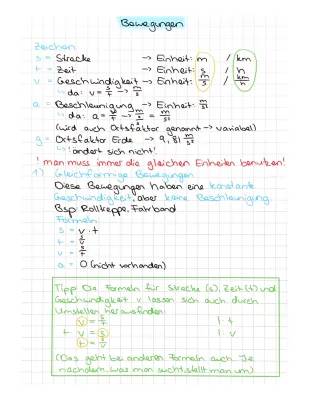 Bewegungen
Zeichen
s = Strecke → Einheit: m / km
t = Zeit → Einheit: s / h
v = Geschwindigkeit → Einheit: m/s / km/h
↳ da: v = s/t → m/s
a = Beschleunigung → Einheit: m/s²
↳ da: a = v/t →
(wird auch Ortsfaktor genannt → variabel)
g = Ortsfaktor Erde → 9,81 m/s²
↳ ändert sich nicht!
! man muss immer die gleichen Einheiten benutzen!
1) Gleichförmige Bewegungen
Diese Bewegungen haben eine konstante
Geschwindigkeit, aber keine Beschleunigung
Bsp. Rolltreppe,
Formeln
s = v · t
t = s/v
v = s/t
a = 0 (nicht vorhanden)
Tipp: Die Formeln für Strecke (s), Zeit (t) und
Geschwindigkeit v lassen sich auch durch
Umstellen herausfinden:
v = s/t | · t
t · v = s | : v
t = s/v
(Das geht bei anderen Formeln auch. Je
nachdem, was man sucht, stellt man um)